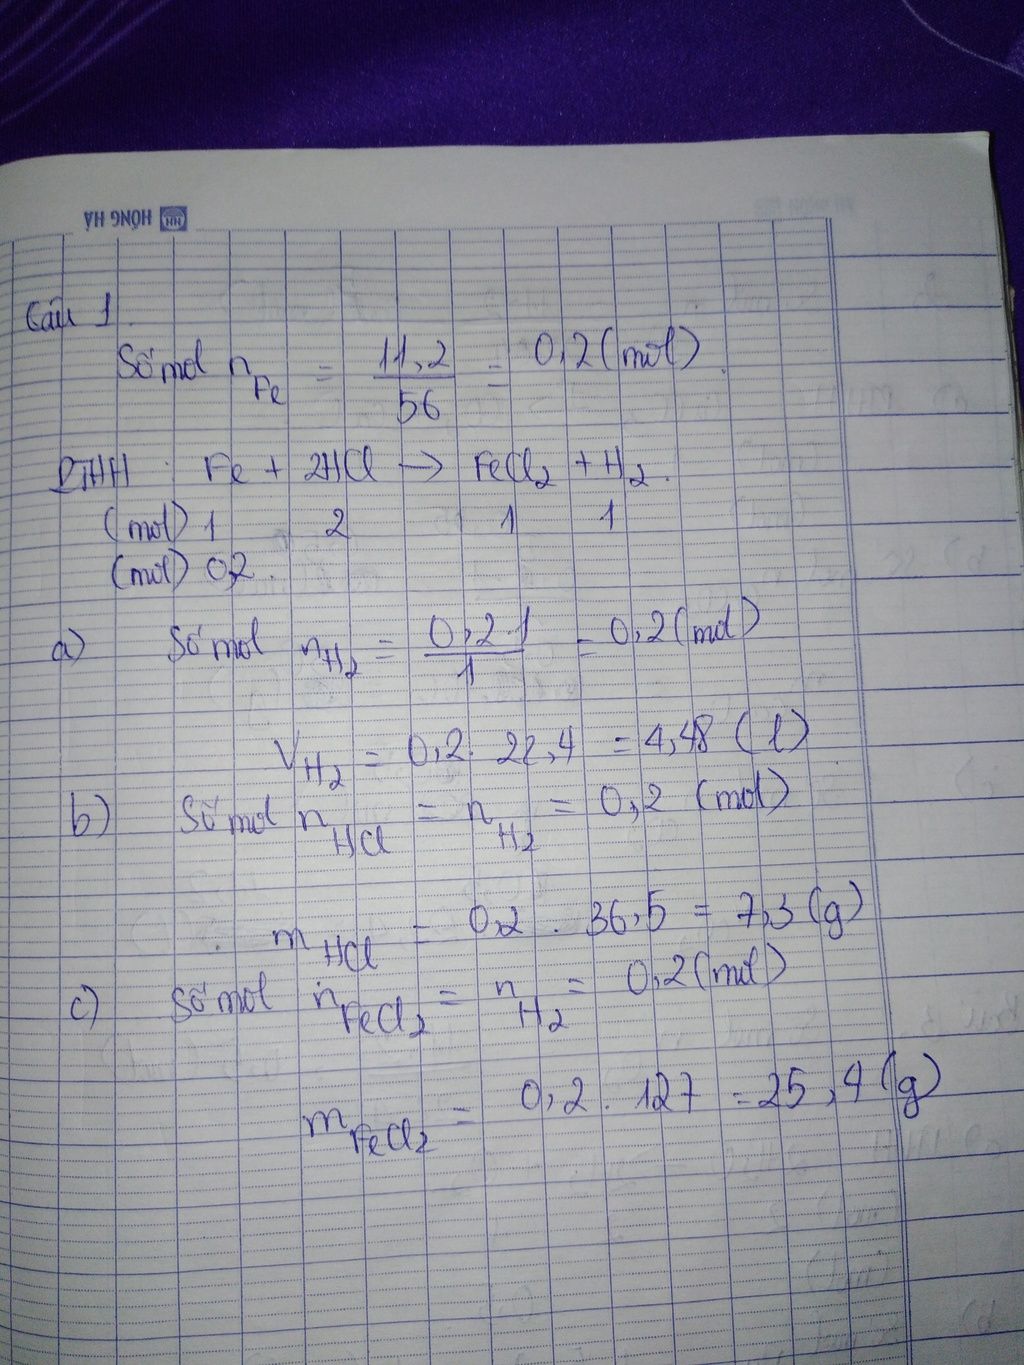 HỒNG HÀ HH
Câu 1.
Số mol nFe = 11,2/56 = 0,2 (mol).
PTHH : Fe + 2HCl → FeCl2 + H2.
(mol) 1 2 1 1
(mol) 0,2.
a) Số mol nH2 = 0,2.1/1 = 0,2 (mol)
VH2 = 0,2. 22,4 = 4,48 (l)
b) Số mol nHCl = nH2 = 0,2 (mol)
mHCl = 0,2 . 36,5 = 7,3 (g)
c) Số mol nFeCl2 = nH2 = 0,2 (mol)
mFeCl2 = 0,2. 127 = 25,4 (g)